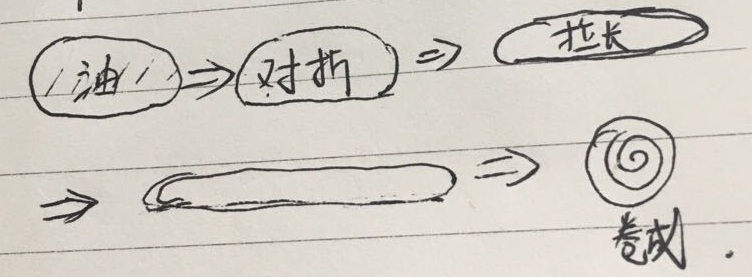 油 ⇒ 对折 ⇒ 拉长
⇒ ⇒
卷成.